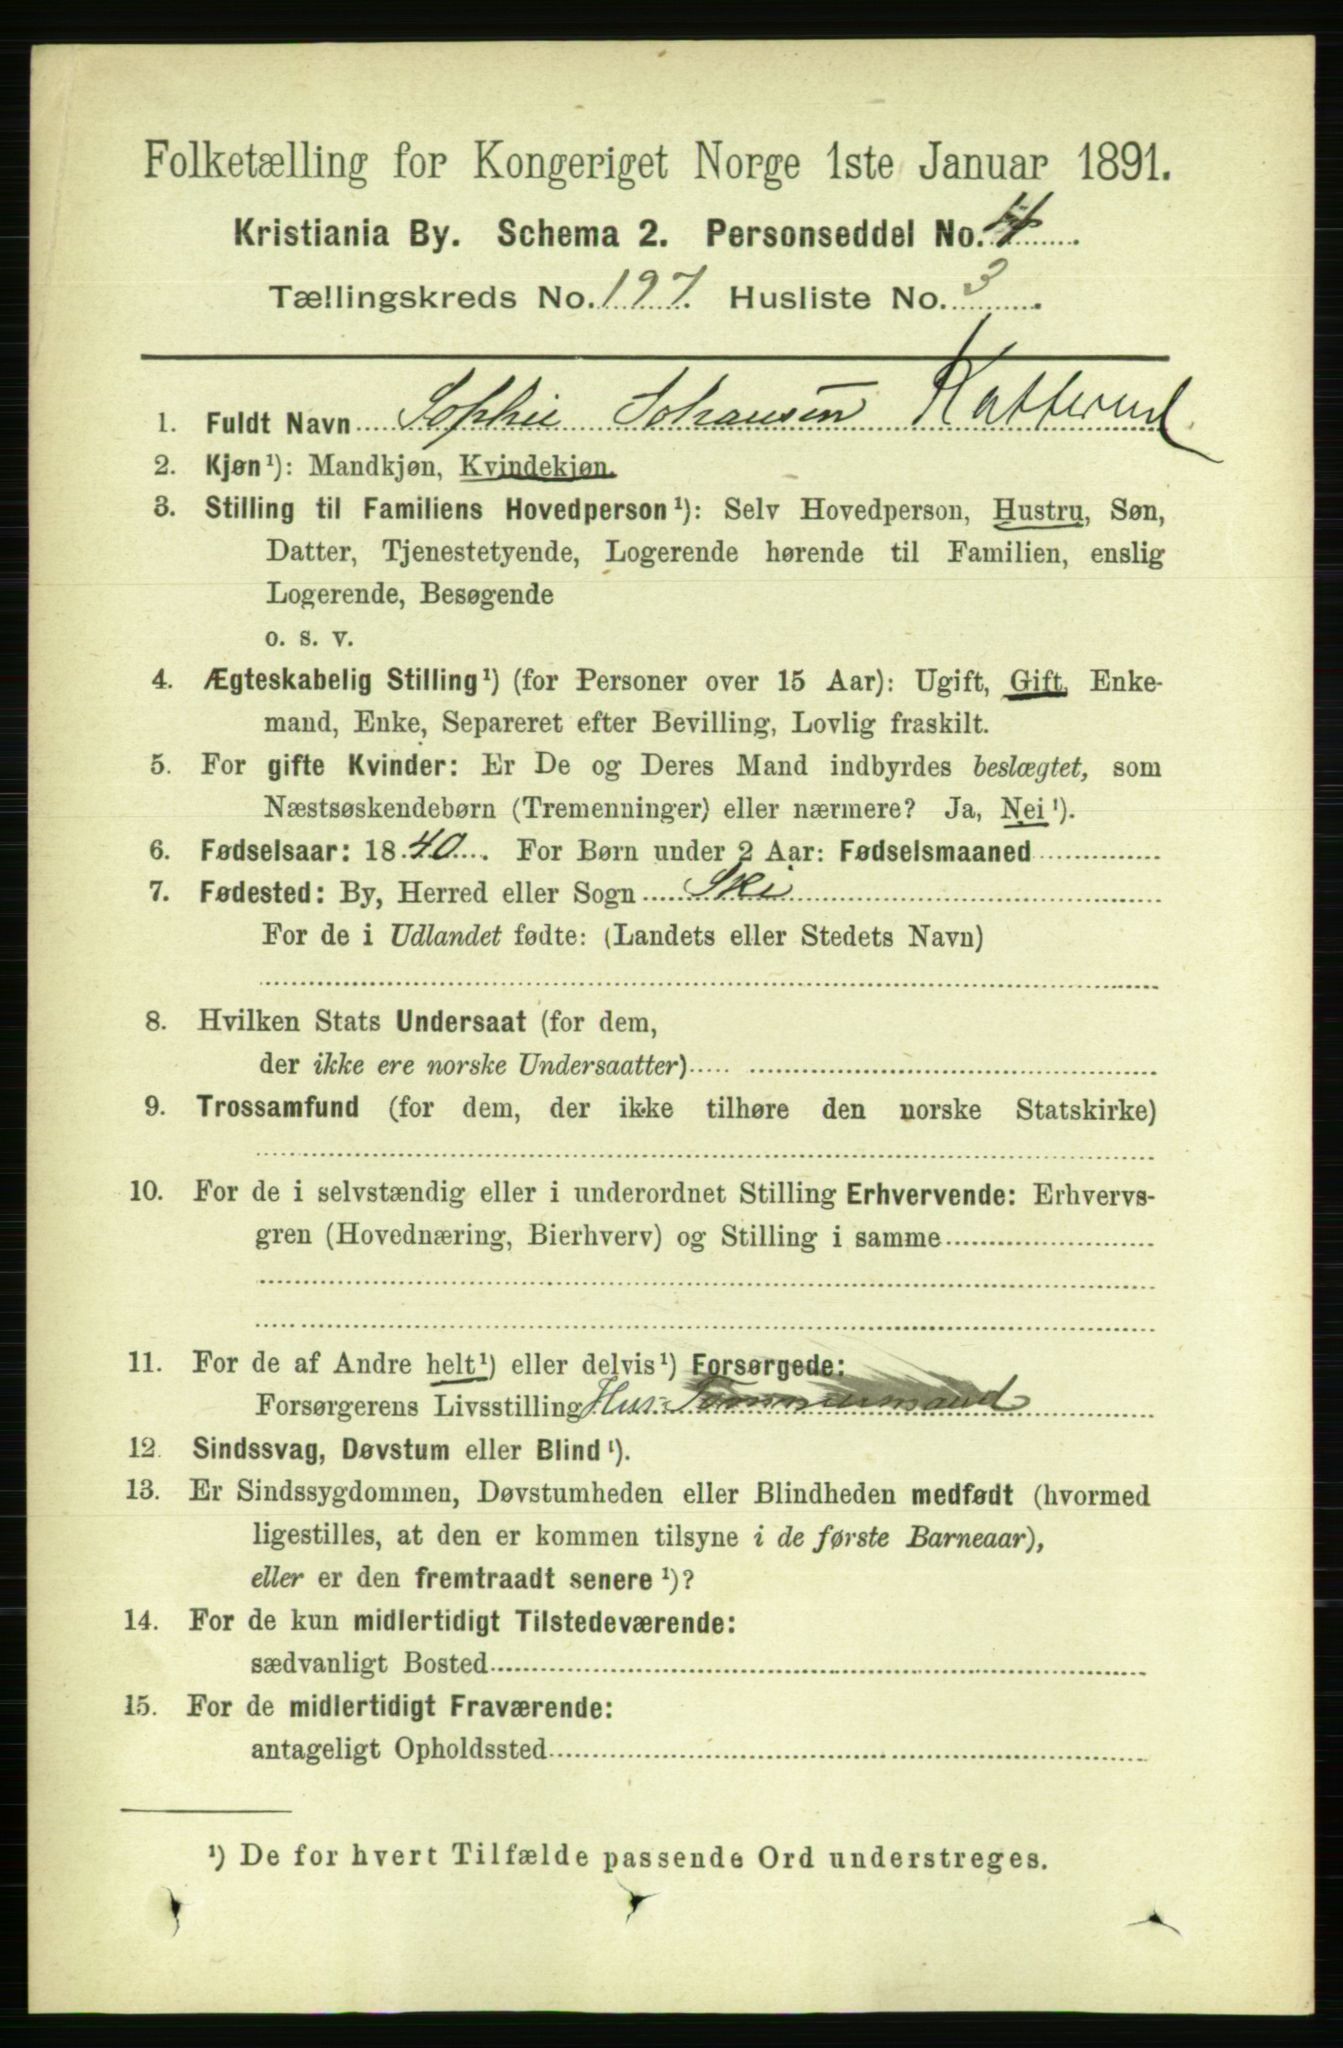 Folketælling for Kongeriget Norge 1ste Januar 1891.
Kristiania By. Schema 2. Personseddel No. 4
Tællingskreds No. 197. Husliste No. 3
1. Fuldt Navn Sophie Johansen Katterud
2. Kjøn¹): Mandkjøn, Kvindekjøn.
3. Stilling til Familiens Hovedperson¹): Selv Hovedperson, Hustru, Søn,
Datter, Tjenestetyende, Logerende hørende til Familien, enslig
Logerende, Besøgende
o. s. v.
4. Ægteskabelig Stilling¹) (for Personer over 15 Aar): Ugift, Gift, Enke-
mand, Enke, Separeret efter Bevilling, Lovlig fraskilt.
5. For gifte Kvinder: Er De og Deres Mand indbyrdes beslægtet, som
Næstsøskendebørn (Tremenninger) eller nærmere? Ja, Nei¹).
6. Fødselsaar: 1840. For Børn under 2 Aar: Fødselsmaaned
7. Fødested: By, Herred eller Sogn Ski
For de i Udlandet fødte: (Landets eller Stedets Navn)
8. Hvilken Stats Undersaat (for dem,
der ikke ere norske Undersaatter)
9. Trossamfund (for dem, der ikke tilhøre den norske Statskirke)
10. For de i selvstændig eller i underordnet Stilling Erhvervende: Erhvervs-
gren (Hovednæring, Bierhverv) og Stilling i samme
11. For de af Andre helt¹) eller delvis¹) Forsørgede:
Forsørgerens Livsstilling Hus-Tømmermand
12. Sindssvag, Døvstum eller Blind¹).
13. Er Sindssygdommen, Døvstumheden eller Blindheden medfødt (hvormed
ligestilles, at den er kommen tilsyne i de første Barneaar),
eller er den fremtraadt senere¹)?
14. For de kun midlertidigt Tilstedeværende:
sædvanligt Bosted
15. For de midlertidigt Fraværende:
antageligt Opholdssted
¹) De for hvert Tilfælde passende Ord understreges.